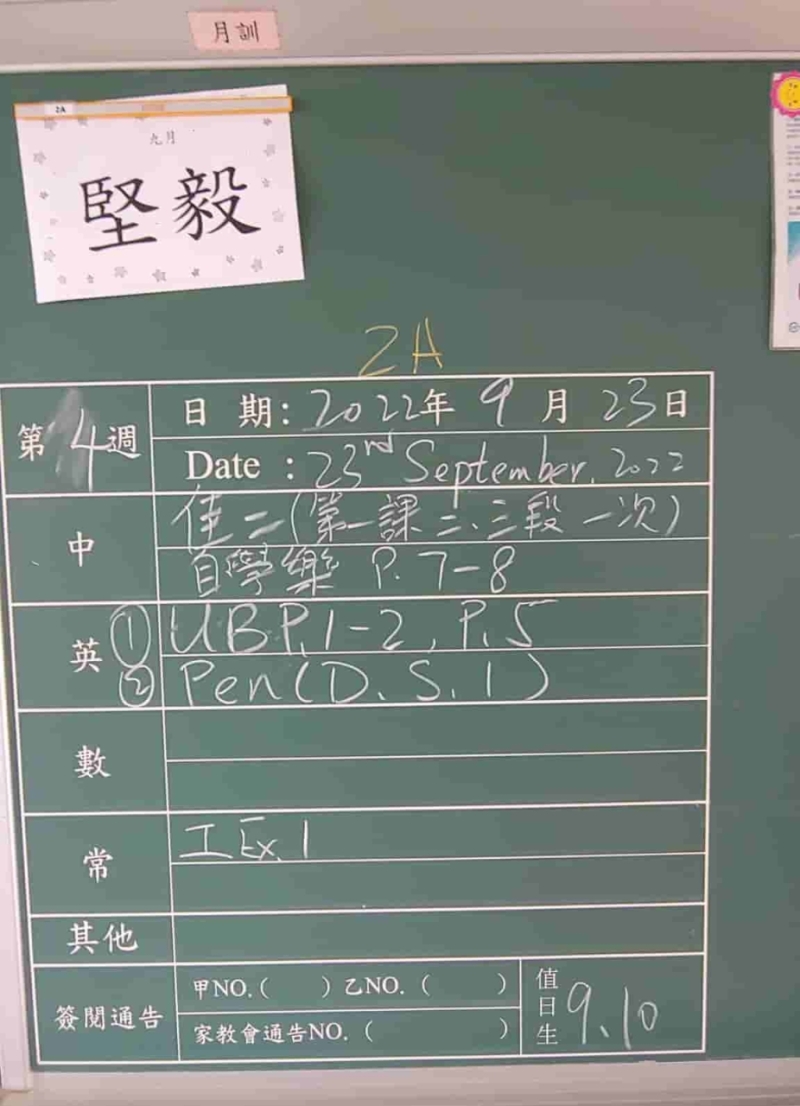 月訓
2A
九月
堅毅
2A
第4週
日 期：2022年 9月 23日
Date : 23rd September, 2022
中
佳二(第一課二、三段一次)
自學樂 P. 7-8
英
① UB P.1-2, P.5
② Pen (D.S.1)
數
常
工Ex.1
其他
簽閱通告
甲NO.( ) 乙NO. ( )
家教會通告NO. ( )
值日生 9、10